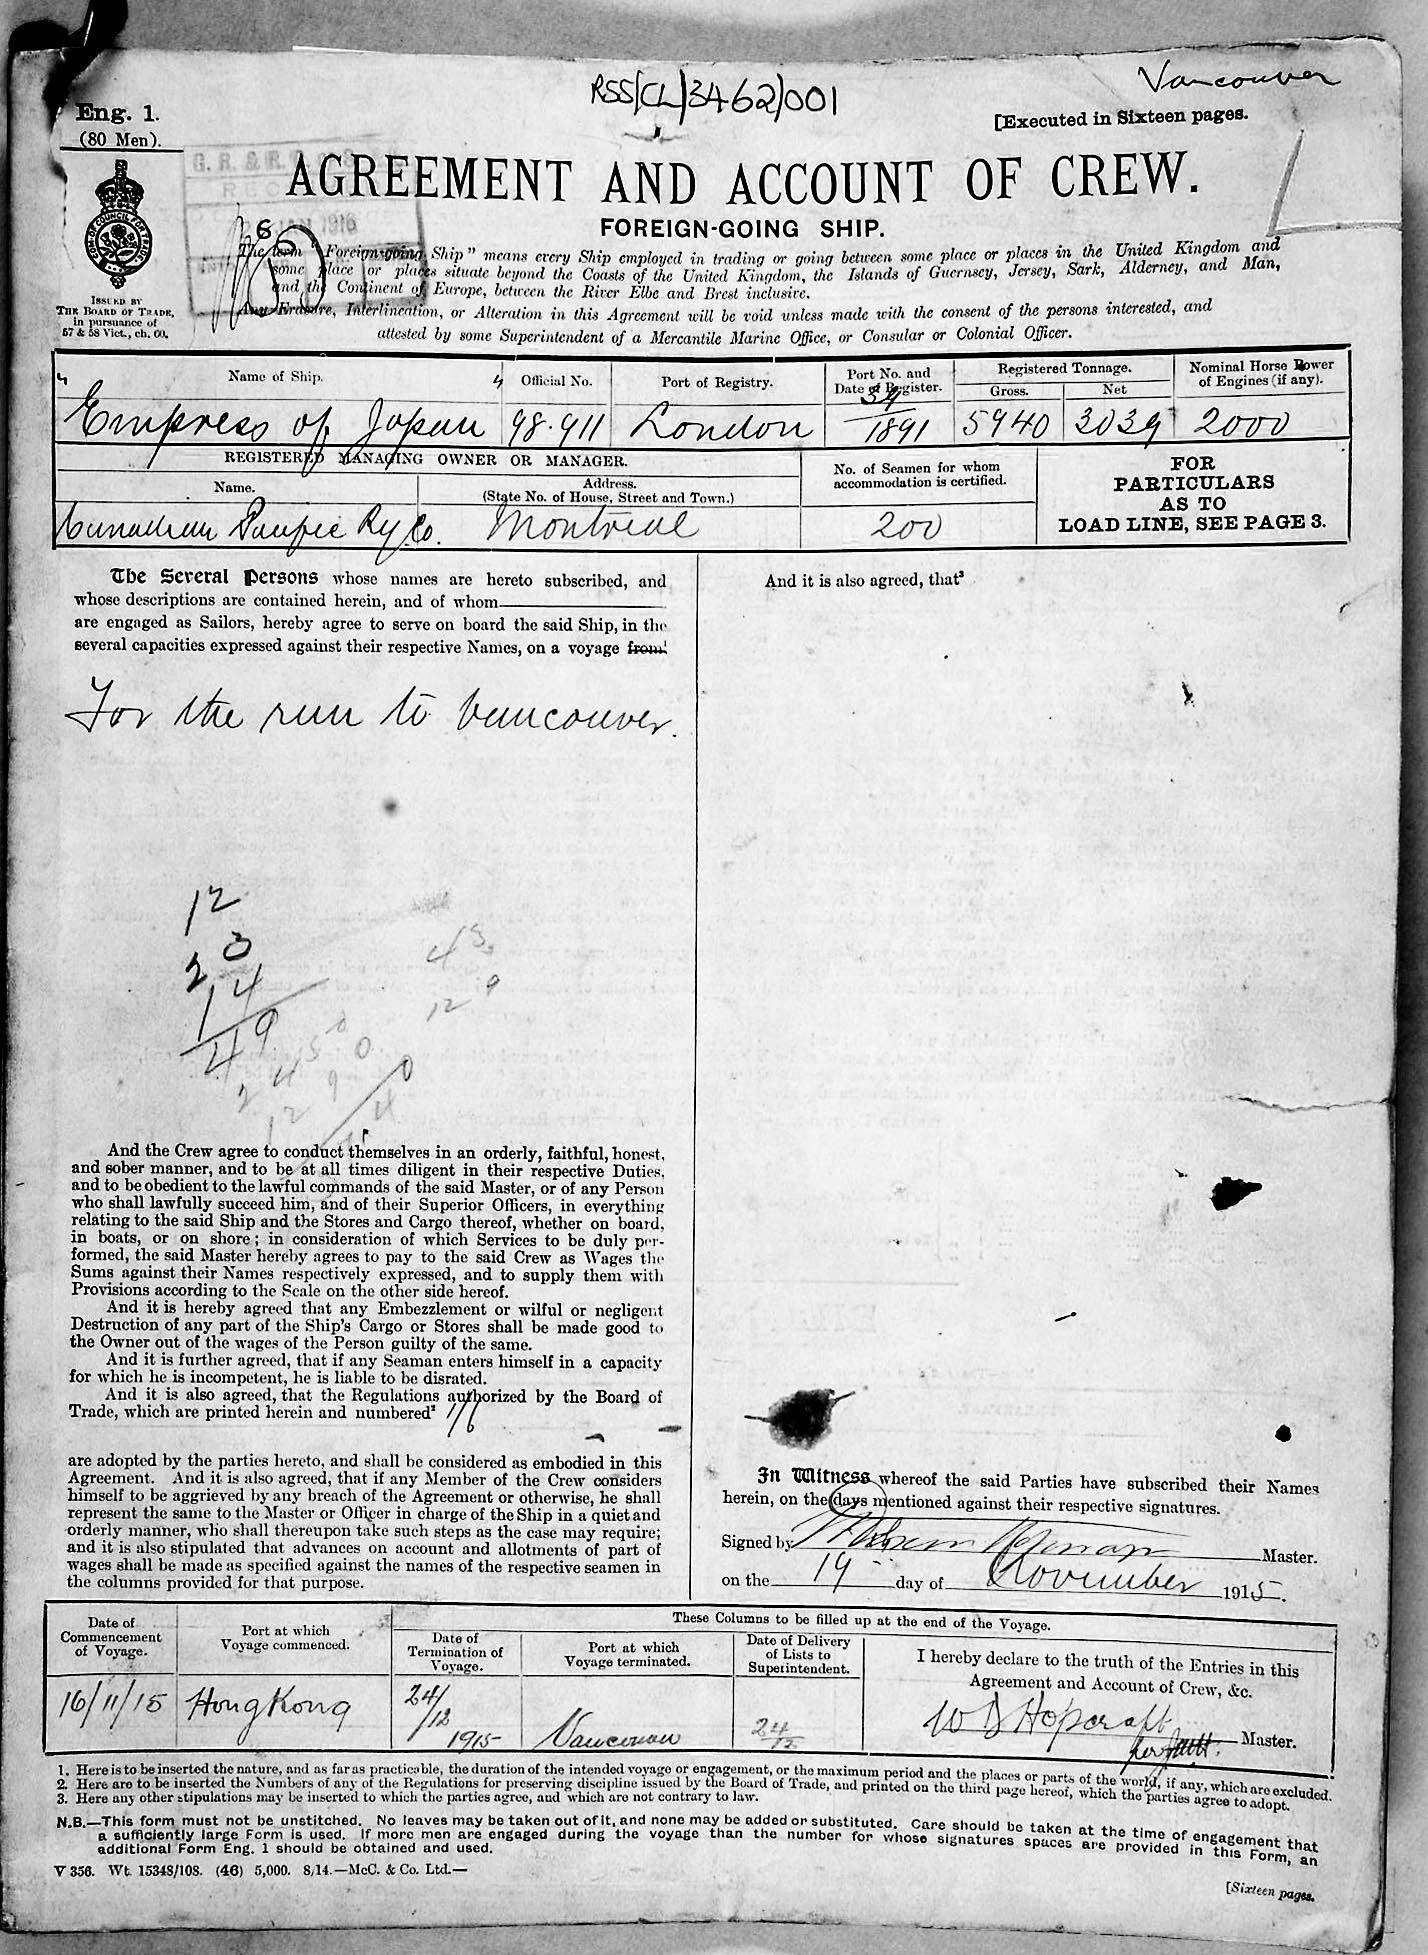 RSS/CL/3462/001
Vancouver
Eng. 1.
(80 Men).
[Executed in Sixteen pages.
G. R. &
JAN 1916
AGREEMENT AND ACCOUNT OF CREW.
FOREIGN-GOING SHIP.
ISSUED BY
THE BOARD OF TRADE,
in pursuance of
57 & 58 Vict., ch. 60.
The term "Foreign-going Ship" means every Ship employed in trading or going between some place or places in the United Kingdom and
some place or places situate beyond the Coasts of the United Kingdom, the Islands of Guernsey, Jersey, Sark, Alderney, and Man,
and the Continent of Europe, between the River Elbe and Brest inclusive.
Any Erasure, Interlineation, or Alteration in this Agreement will be void unless made with the consent of the persons interested, and
attested by some Superintendent of a Mercantile Marine Office, or Consular or Colonial Officer.
Name of Ship. Official No. Port of Registry. Port No. and Date of Register. Registered Tonnage. Gross. Net Nominal Horse Power of Engines (if any).
Empress of Japan 98.911 London 39/1891 5940 3039 2000
REGISTERED MANAGING OWNER OR MANAGER.
Name. Address. (State No. of House, Street and Town.)
No. of Seamen for whom accommodation is certified.
FOR
PARTICULARS
AS TO
LOAD LINE, SEE PAGE 3.
Canadian Pacific Ry Co. Montreal 200
The Several Persons whose names are hereto subscribed, and
whose descriptions are contained herein, and of whom
are engaged as Sailors, hereby agree to serve on board the said Ship, in the
several capacities expressed against their respective Names, on a voyage from¹
For the run to Vancouver.
12
23
14
49
43
12 9
And the Crew agree to conduct themselves in an orderly, faithful, honest,
and sober manner, and to be at all times diligent in their respective Duties,
and to be obedient to the lawful commands of the said Master, or of any Person
who shall lawfully succeed him, and of their Superior Officers, in everything
relating to the said Ship and the Stores and Cargo thereof, whether on board,
in boats, or on shore; in consideration of which Services to be duly per-
formed, the said Master hereby agrees to pay to the said Crew as Wages the
Sums against their Names respectively expressed, and to supply them with
Provisions according to the Scale on the other side hereof.
And it is hereby agreed that any Embezzlement or wilful or negligent
Destruction of any part of the Ship's Cargo or Stores shall be made good to
the Owner out of the wages of the Person guilty of the same.
And it is further agreed, that if any Seaman enters himself in a capacity
for which he is incompetent, he is liable to be disrated.
And it is also agreed, that the Regulations authorized by the Board of
Trade, which are printed herein and numbered² 1/6
are adopted by the parties hereto, and shall be considered as embodied in this
Agreement. And it is also agreed, that if any Member of the Crew considers
himself to be aggrieved by any breach of the Agreement or otherwise, he shall
represent the same to the Master or Officer in charge of the Ship in a quiet and
orderly manner, who shall thereupon take such steps as the case may require;
and it is also stipulated that advances on account and allotments of part of
wages shall be made as specified against the names of the respective seamen in
the columns provided for that purpose.
And it is also agreed, that³
In Witness whereof the said Parties have subscribed their Names
herein, on the days mentioned against their respective signatures.
Signed by Master.
on the 19 day of November 1915.
Date of Commencement of Voyage. Port at which Voyage commenced.
These Columns to be filled up at the end of the Voyage.
Date of Termination of Voyage. Port at which Voyage terminated. Date of Delivery of Lists to Superintendent.
I hereby declare to the truth of the Entries in this
Agreement and Account of Crew, &c.
16/11/15 Hong Kong 24/12 1915 Vancouver 24/12 W D Hopcraft Master.
1. Here is to be inserted the nature, and as far as practicable, the duration of the intended voyage or engagement, or the maximum period and the places or parts of the world, if any, which are excluded.
2. Here are to be inserted the Numbers of any of the Regulations for preserving discipline issued by the Board of Trade, and printed on the third page hereof, which the parties agree to adopt.
3. Here any other stipulations may be inserted to which the parties agree, and which are not contrary to law.
N.B.—This form must not be unstitched. No leaves may be taken out of it, and none may be added or substituted. Care should be taken at the time of engagement that
a sufficiently large Form is used. If more men are engaged during the voyage than the number for whose signatures spaces are provided in this Form, an
additional Form Eng. 1 should be obtained and used.
V 356. Wt. 15348/108. (46) 5,000. 8/14.—McC. & Co. Ltd.—
[Sixteen pages.